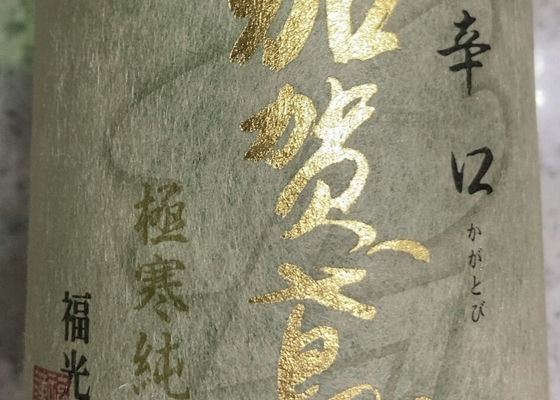 辛口
かがとび
加賀鳶
極寒純
福光